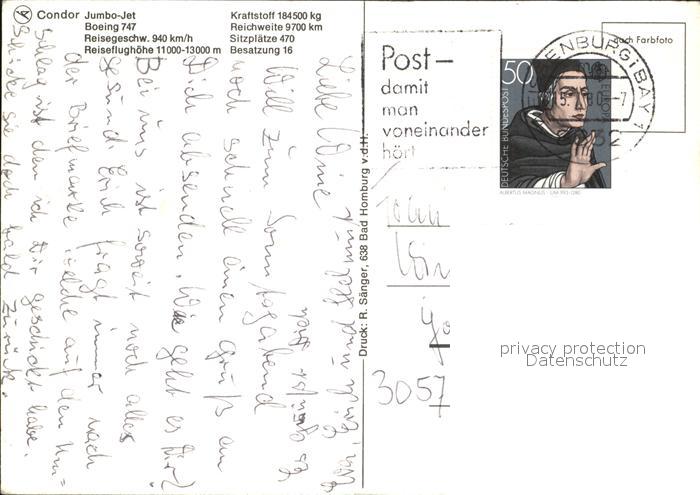 Condor Jumbo-Jet
Boeing 747
Reisegeschw. 940 km/h
Reiseflughöhe 11000-13000 m
Kraftstoff 184500 kg
Reichweite 9700 km
Sitzplätze 470
Besatzung 16
Liebe
Will zum Sonntagabend
noch schnell einen Gruß an
Dich absenden. Wie geht es Dir?
Bei uns ist soweit noch alles
gesund. Erich fragt immer nach
der Briefmarke welche auf den Um=
schlag ist den ich Dir geschickt habe.
Schicke sie doch bald zurück.
Es grüßt Dich
Druck: R. Sänger, 638 Bad Homburg v.d.H.
Post-
damit
man
voneinander
hört
ENBURG (BAY
50
DEUTSCHE BUNDESPOST
EUROPA
ALBERTUS MAGNUS
auch Farbfoto
3057
privacy protection
Datenschutz